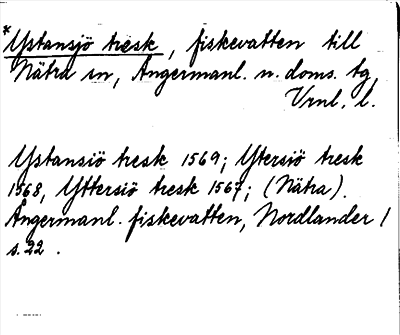 *Ystansjö tresk, fiskevatten till
Nätra sn, Ångermanl. n. doms. tg,
Vrnl. l.
Ystansiö tresk 1569; Ytersiö tresk
1568, Yttersiö tresk 1567; (Nätra).
Ångermanl. fiskevatten, Nordlander 1
s. 22.